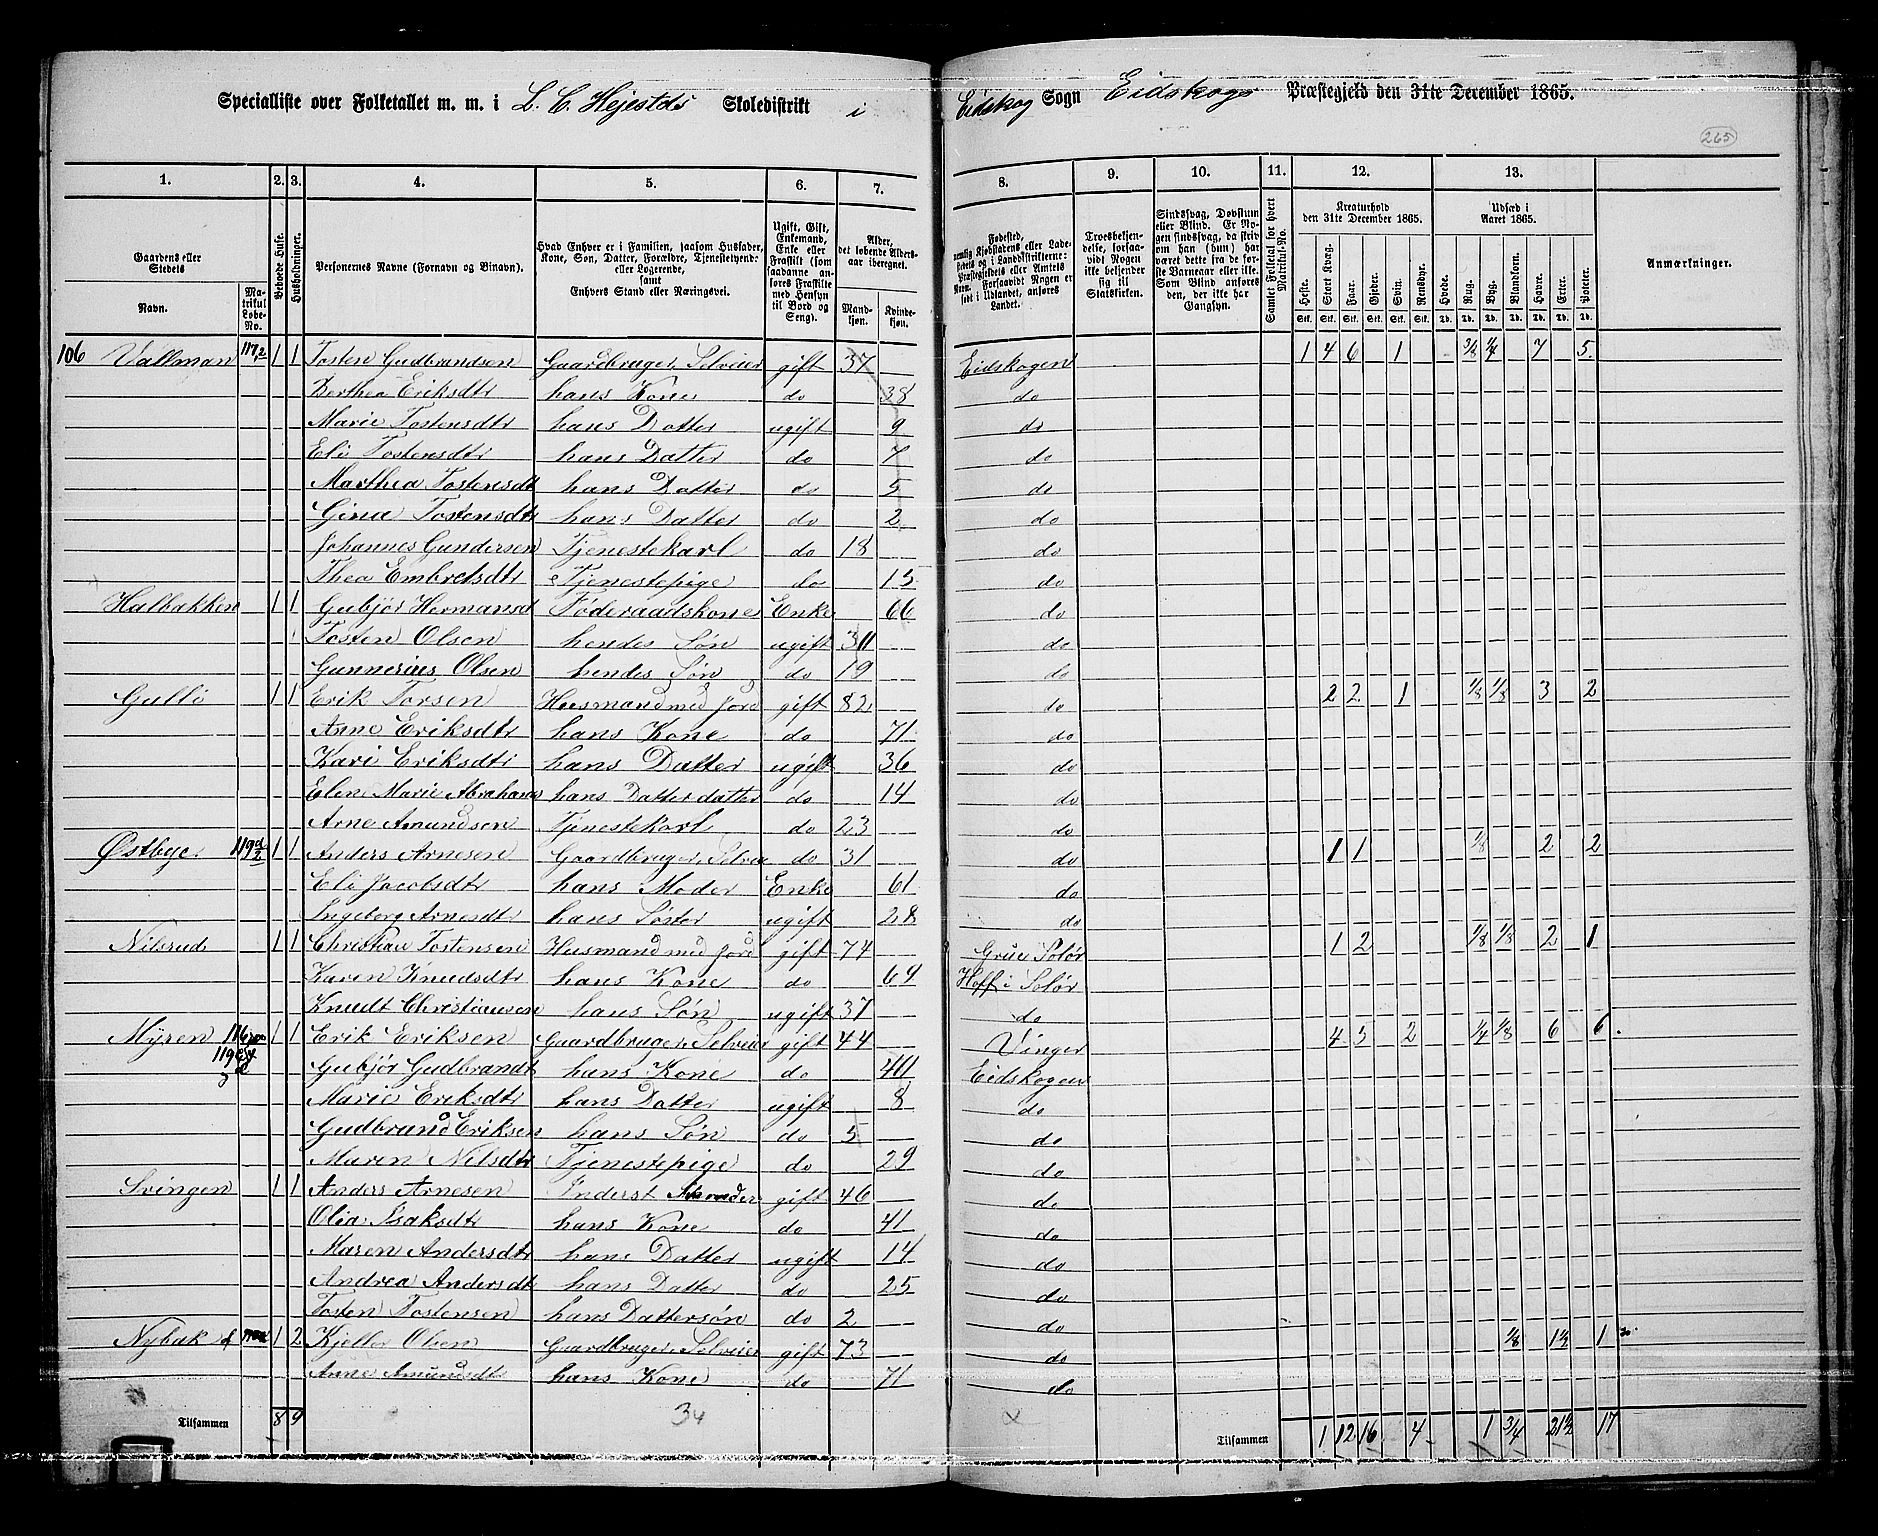 Specialliste over Folketallet m. m. i L. C. Hejestds Skoledistrikt i Eidskog Sogn Eidskogs Præstegjeld den 31te December 1865.
265
1. 2. 3. 4. 5. 6. 7. 8. 9. 10. 11. 12. 13.
Gaardens eller Stedets
Navn.
Matrikul Løbe-No.
Beboede Huse.
Husholdninger.
Personernes Navne (Fornavn og Binavn).
Hvad Enhver er i Familien, saasom Husfader, Kone, Søn, Datter, Forældre, Tjenestetyende eller Logerende, samt Enhvers Stand eller Næringsvei.
Ugift, Gift, Enkemand, Enke eller Fraskilt (som saadanne anføres Fraskilte med Hensyn til Bord og Seng).
Alder, det løbende Aldersaar iberegnet.
Mandkjøn.
Kvindekjøn.
Fødested,
Troesbekjendelse, forsaavidt Nogen ikke bekjender sig til Statskirken.
Sindssvag, Døvstum eller Blind. Er Nogen sindssvag, da skrives om han (hun) har været dette fra de første Barneaar eller ikke. Som Blind anføres den, der ikke har Gangsyn.
Samlet Folketal for hvert Matrikul-No.
Kreaturhold den 31te December 1865.
Heste. Stort Kvæg. Faar. Gjeder. Svin. Rensdyr.
Udsæd i Aaret 1865.
Hvede. Rug. Byg. Blandkorn. Havre. Erter. Poteter.
Anmærkninger.
106 Vallman 117,2 1 1 Tosten Gudbrandsen Gaardbruger, Selveier gift 37 Eidskogen 1 4 6 1 3/8 1/4 7 5
Berthea Eriksdtr hans Kone do 38 do
Marie Tostensdtr hans Datter ugift 9 do
Eli Tostensdtr hans Datter do 7 do
Marthea Tostensdt hans Datter do 5 do
Gina Tostensdtr hans Datter do 2 do
Johannes Gundersen Tjenestekarl do 18 do
Thea Embretsdtr Tjenestepige do 15 do
Halbakken 1 1 Gubjør Hermansd Føderaadskone Enke 66 do
Tosten Olsen hendes Søn ugift 30 do
Gunnerius Olsen hendes Søn do 19 do
Gulli 1 1 Erik Torsen Husmand med Jord gift 82 do 2 2 1 1/8 1/8 3 2
Anne Eriksdtr hans Kone do 71 do
Kari Eriksdtr hans Datter ugift 36 do
Elen Marie Abrahams hans Datterdatter do 14 do
Arne Amundsen Tjenestekarl do 23 do
Østbye 119 1 1 Anders Arnesen Gaardbruger, Selveier do 31 do 1 1 1/8 2 2
Eli Jacobsdtr hans Moder Enke 61 do
Ingeborg Arnesdtr hans Søster ugift 28 do
Nilsrud 1 1 Christian Tostensen Husmand med Jord gift 74 Grue Solør 1 2 1/8 1/8 2 1
Karen Knudsdtr hans Kone do 69 Hoff i Solør
Knudt Christiansen hans Søn ugift 37 do
Myren 116 1 1 Erik Eriksen Gaardbruger, Selveier gift 44 Vinger 4 5 2 1/4 1/8 6 6
119 Gubjør Gudbrandt hans Kone do 40 Eidskogen
Marie Eriksdtr hans Datter ugift 8 do
Gudbrand Eriksen hans Søn do 5 do
Maren Nilsdtr Tjenestepige do 29 do
Svingen 1 1 Anders Arnesen Inderst gift 46 do
Olia Isaksdtr hans Kone do 41 do
Maren Andersdtr hans Datter ugift 14 do
Andrea Andersdt hans Datter do 25 do
Tosten Tostensen hans Dattersøn do 2 do
Nybak 1 2 Kjeller Olsen Gaardbruger, Selveier gift 73 do 1/8 1 1/2 1
Anne Amundsdt hans Kone do 71 do
Tilsammen 8 9 34 x Tilsammen 1 12 16 4 1 3/4 21 1/2 17